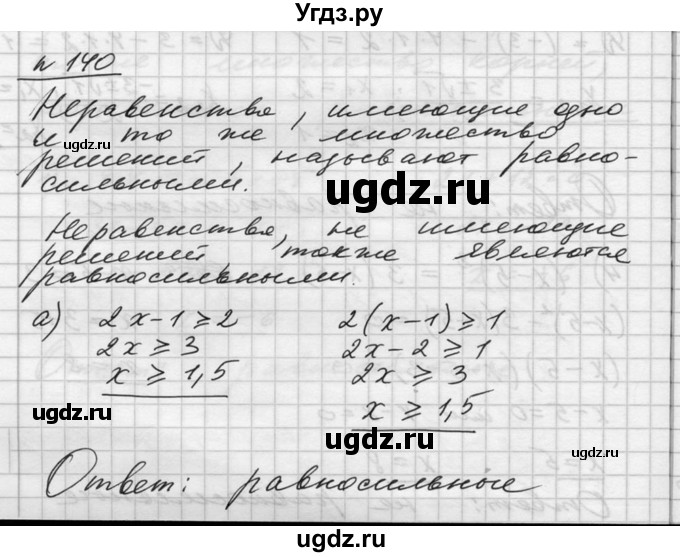 Угдз.ру
n 140
Неравенства, имеющие одно
и то же множество
решений, называют равно-
сильными.
Неравенства, не имеющие
решений, также являются
равносильными.
а) 2x-1≥2 2(x-1)≥1
2x≥3 2x-2≥1
x≥1,5 2x≥3
x≥1,5
Ответ: равносильные
ugdz.ru
ugdz.ru
ugdz.ru
ugdz.ru
ugdz.ru
ugdz.ru
ugdz.ru
ugdz.ru
ugdz.ru
ugdz.ru